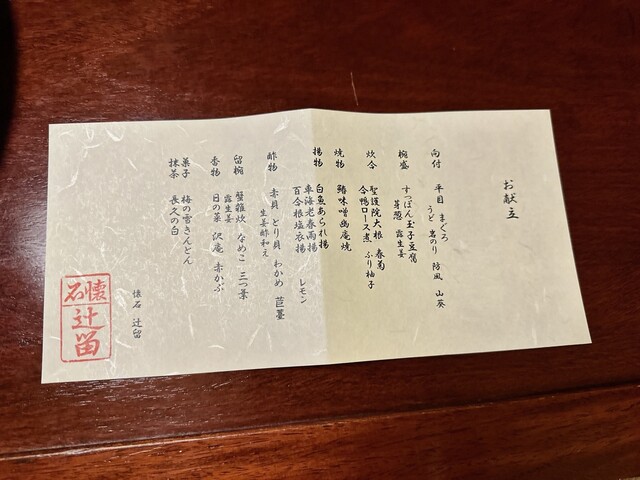 お献立
向付 平目 まぐろ
うど 岩のり 防風 山葵
椀盛 すっぽん玉子豆腐
芽葱 露生姜
炊合 聖護院大根 春菊
合鴨ロース煮 ふり柚子
焼物 鰆味噌幽庵焼
揚物 白魚あられ揚
車海老春雨揚
百合根塩衣揚 レモン
酢物 赤貝 とり貝 わかめ 苣薹
生姜酢和え
留椀 蟹雑炊 なめこ 三つ葉
露生姜
香物 日の菜 沢庵 赤かぶ
菓子 梅の雪きんとん
抹茶 長久の白
懐石 辻留
懐石
辻留